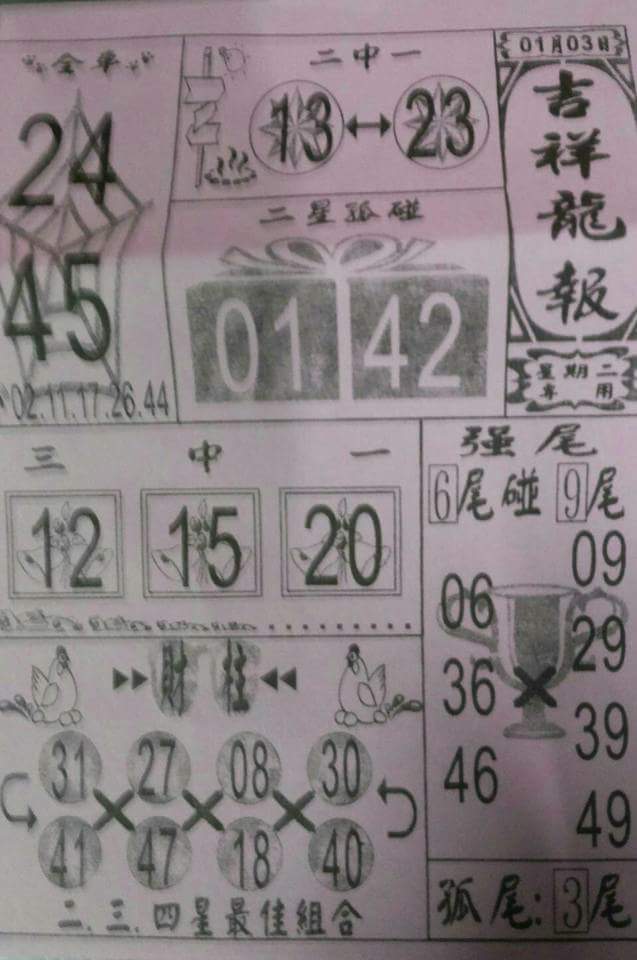 01月03日
吉祥龍報
星期二
專用
全車
24
45
02.11.17.26.44
二中一
13 23
二星孤碰
01 42
三中一
12 15 20
强尾
6尾碰9尾
06 09
36 29
46 39
49
財柱
31 27 08 30
41 47 18 40
二.三.四星最佳組合
孤尾:3尾